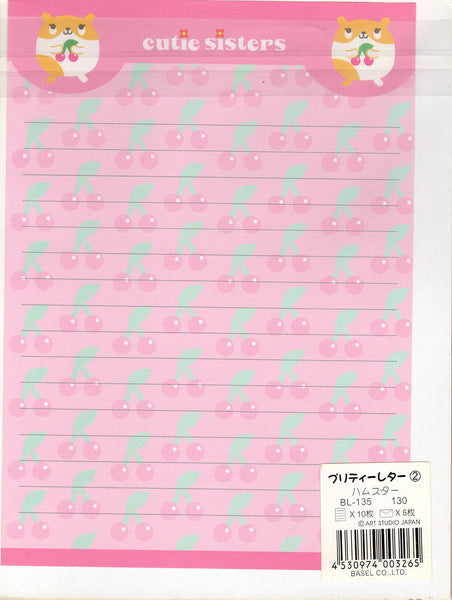 cutie sisters
プリティーレター ②
ハムスター
BL-135 130
X 10枚 X 5枚
© ART STUDIO JAPAN
4 530974 003265
BASEL CO.,.LTD.